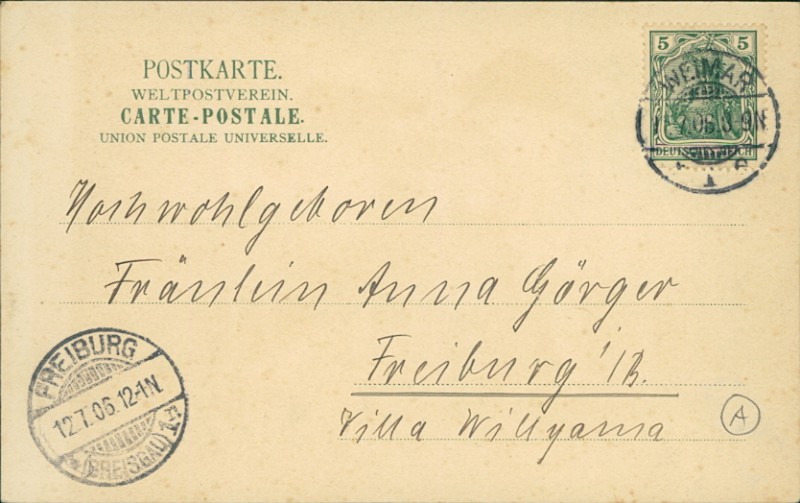 POSTKARTE.
WELTPOSTVEREIN.
CARTE-POSTALE.
UNION POSTALE UNIVERSELLE.
5 5
DEUTSCHES REICH
WEIMAR
7.06.
1
Hochwohlgeboren
Fräulein Anna Görger
Freiburg i/B.
Villa Willyama
A
FREIBURG
12.7.06.12-1N.
(BREISGAU)